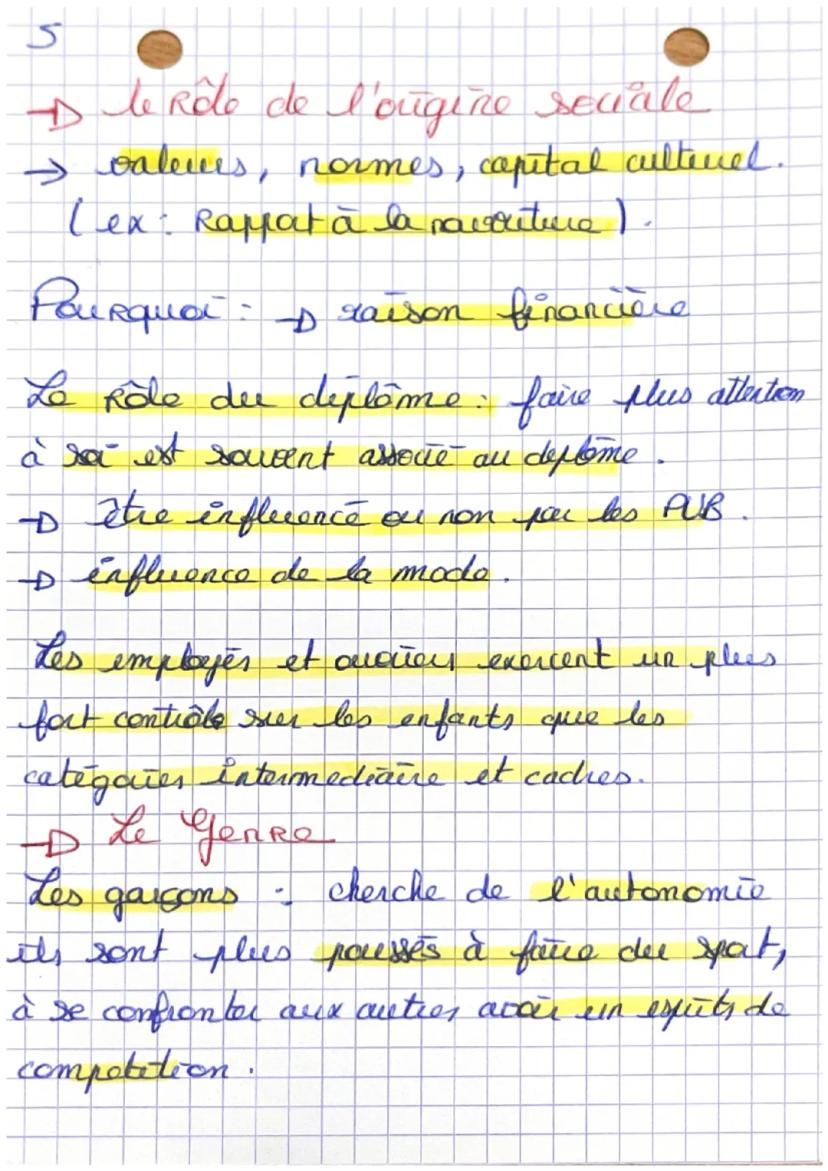 5
→ le Rôle de l'origine sociale
→ valeurs, normes, capital culturel.
(ex : Rapport à la nourriture).
Pourquoi : → raison financière
Le Rôle du diplôme : faire plus attention
à soi est souvent associé au diplôme.
→ être influencé ou non par les PUB.
→ influence de la mode.
Les employés et ouvriers exercent un plus
fort contrôle sur les enfants que les
catégories intermediaire et cadres.
→ Le Genre
Les garçons : cherche de l'autonomie
ils sont plus poussés à faire du sport,
à se confronter aux autres avoir un esprits de
competition.